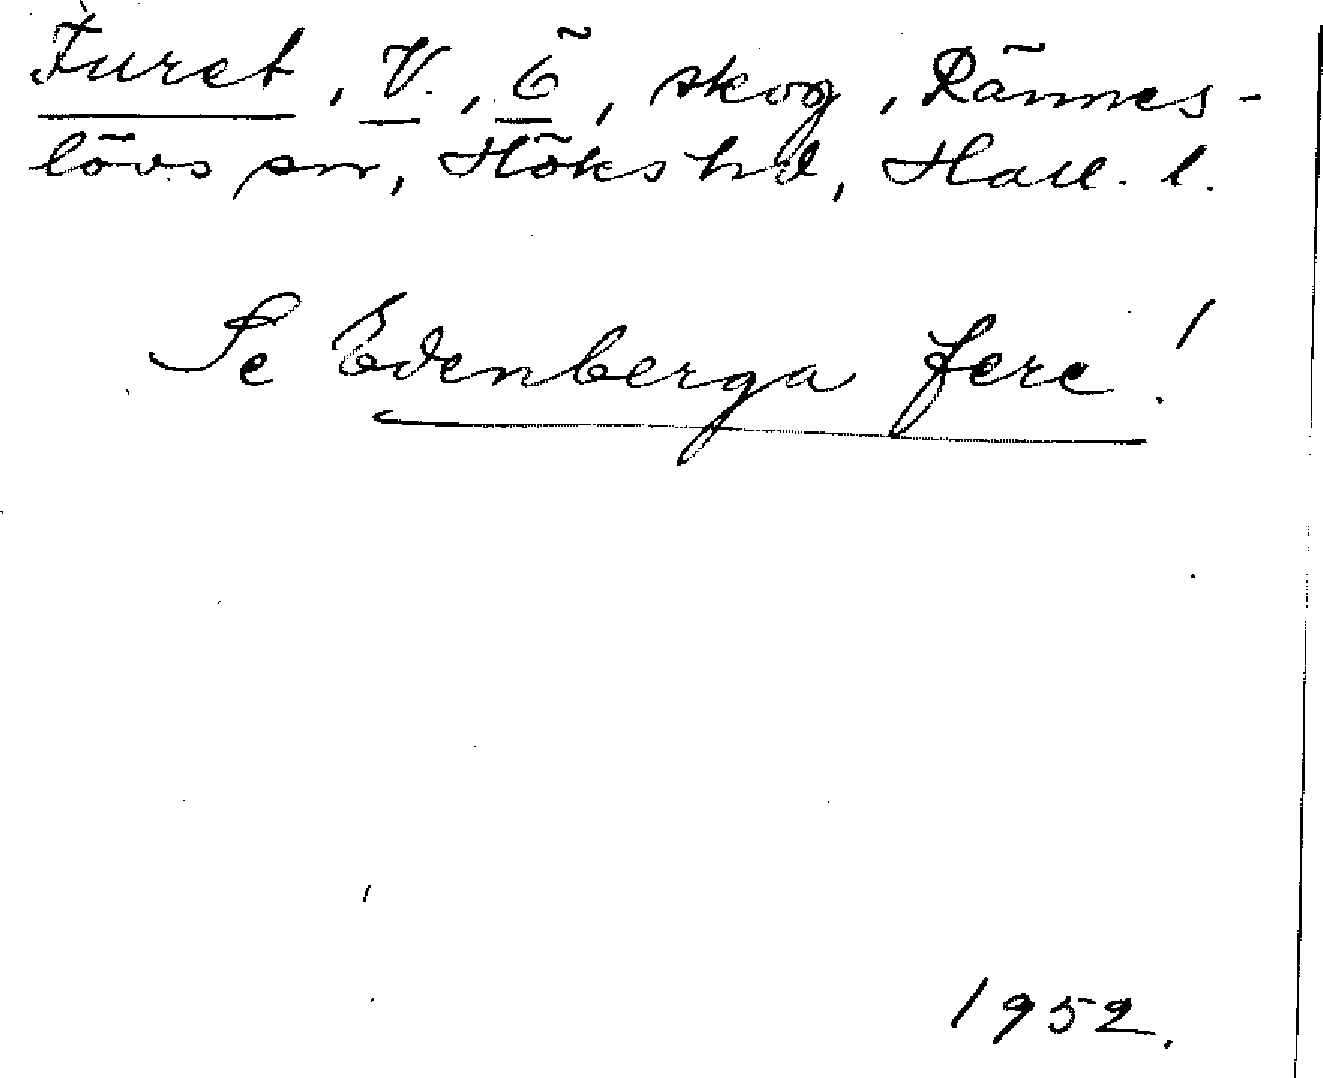 Furet, V., Ö, skog, Rännes-
lövs sn, Höks hd, Hall. l.
Se Edenberga fere!
1952.